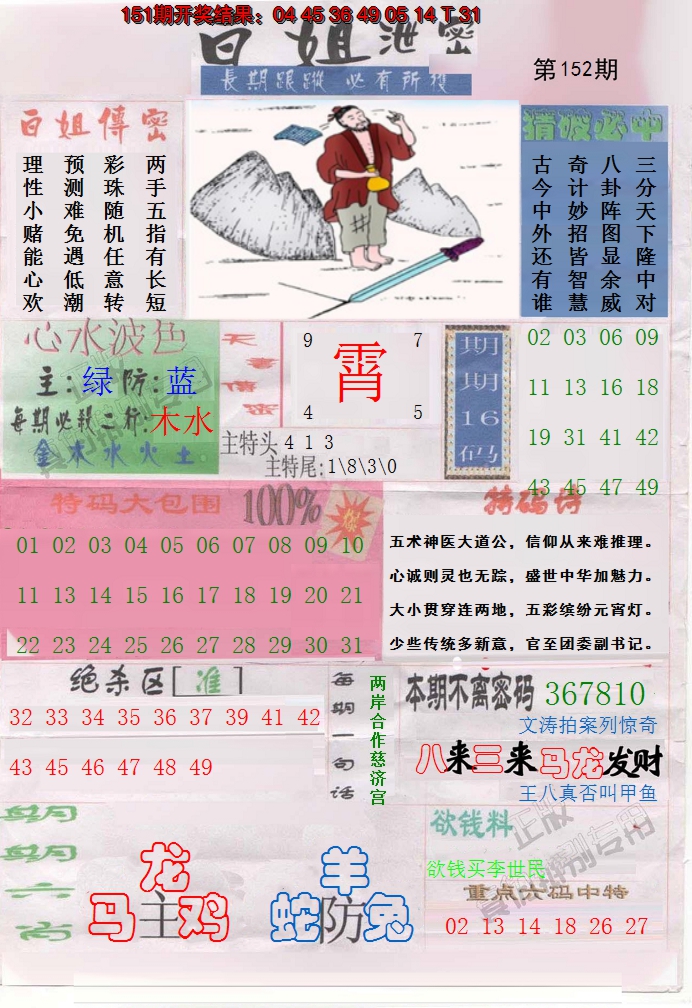 151期开奖结果：04 45 36 49 05 14 T 31
白姐泄密
第152期
長期跟蹤 必有所獲
白姐傳密
两手五指有长短
彩珠随机任意转
预测难免遇低潮
理性小赌能心欢
猜彼必中
三分天下隆中对
八卦阵图显余威
奇计妙招皆智慧
古今中外还有谁
心水波色
主：绿 防：蓝
每期必殺二行：木水
金木水火土
9 7
霄
4 5
主特头 4 1 3
主特尾：1\8\3\0
期期16码
02 03 06 09
11 13 16 18
19 31 41 42
43 45 47 49
特码大包围 100%
01 02 03 04 05 06 07 08 09 10
11 13 14 15 16 17 18 19 20 21
22 23 24 25 26 27 28 29 30 31
特码诗
五术神医大道公，信仰从来难推理。
心诚则灵也无踪，盛世中华加魅力。
大小贯穿连两地，五彩缤纷元宵灯。
少些传统多新意，官至团委副书记。
绝杀区[准]
32 33 34 35 36 37 39 41 42
43 45 46 47 48 49
每期一句话
两岸合作慈济宫
本期不离密码 367810
文涛拍案列惊奇
八来三来马龙发财
王八真否叫甲鱼
龙
马主鸡
羊
蛇防兔
欲钱料
欲钱买李世民
重点六码中特
02 13 14 18 26 27